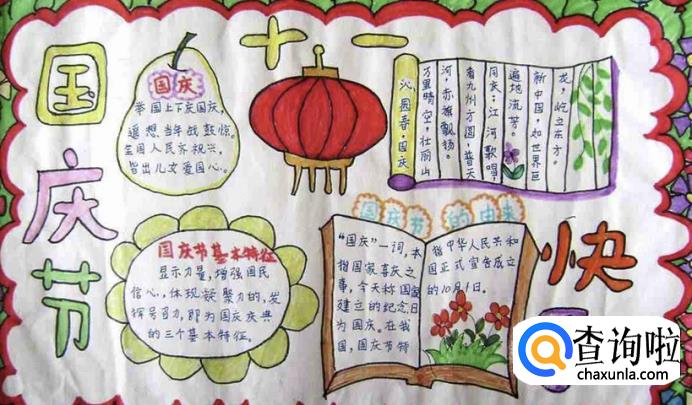 国庆节
十一
快
国庆
举国上下庆国庆，
遥想当年战鼓惊。
全国人民齐祝兴，
皆出儿女爱国心。
沁园春·国庆
万里晴空，壮丽山
河，赤旗飘扬。
看九州方圆，普天
同庆；江河歌唱，
遍地流芳。
新中国，如世界巨
龙，屹立东方。
国庆节基本特征
显示力量，增强国民
信心，体现凝聚力的，发
挥号召力，即为国庆庆典
的三个基本特征。
国庆节的由来
"国庆"一词，本
指国家喜庆之
事，今天称国家
建立的纪念日
为国庆。在我
国，国庆节特
指中华人民共和
国正式宣告成立
的10月1日。
查询啦
chaxunla.com